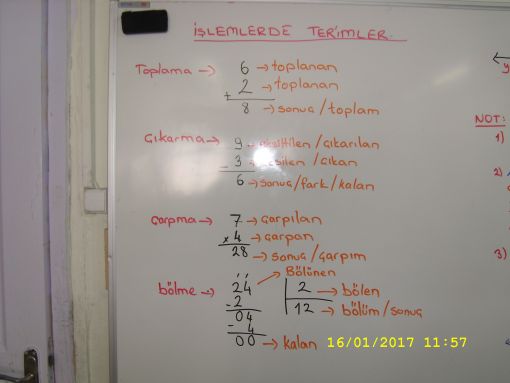 İŞLEMLERDE TERİMLER
Toplama → 6 → toplanan
+ 2 → toplanan
8 → sonuç/toplam
Çıkarma → 9 → /Çıkarılan
- 3 → /Çıkan
6 → sonuç/fark/kalan
Çarpma → 7 → Çarpılan
x 4 → Çarpan
28 → sonuç/Çarpım
Bölünen
bölme → 24 2 → bölen
-2 12 → bölüm/sonuç
04
- 4
00 → kalan
NOT:
1)
2)
3)
16/01/2017 11:57